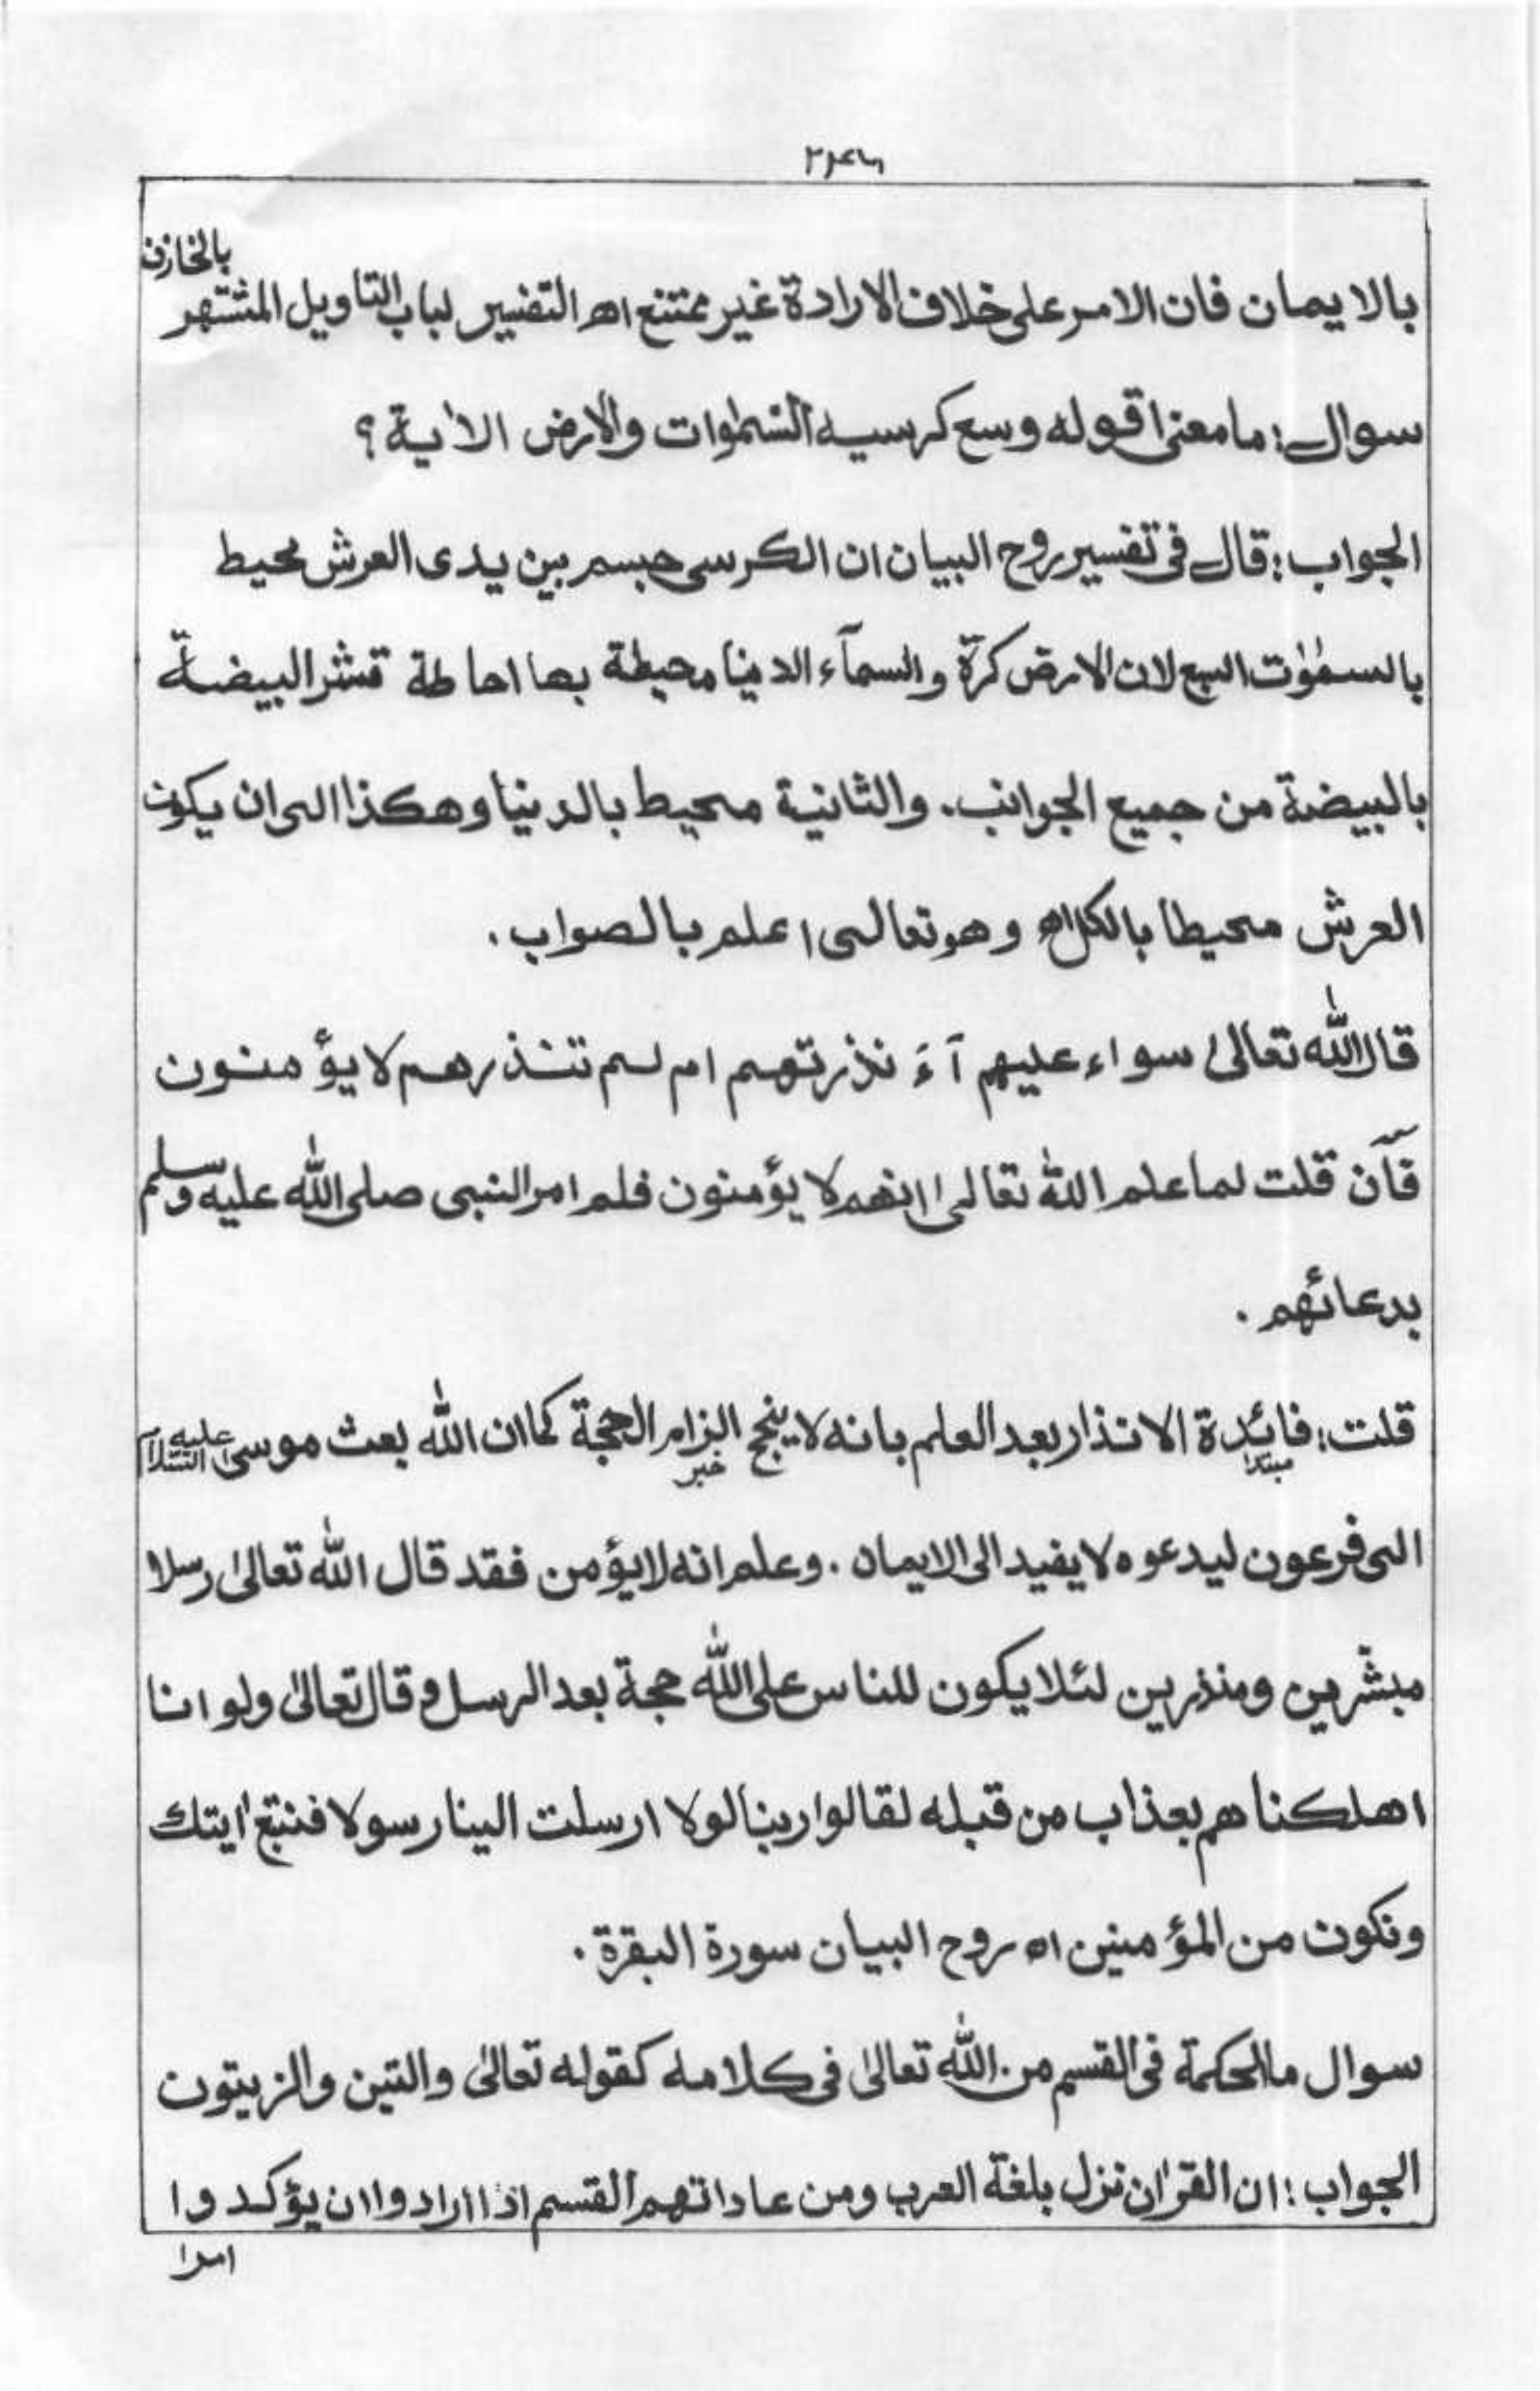 بالايمان فان الامر على خلاف الارادة غير ممتنع اھ التفسير لباب التاويل المشتهر بالخازن
سوال: ما معنى قوله وسع كرسيه السمٰوات والارض الاٰية؟
الجواب: قال فى تفسير روح البيان ان الكرسى جسم بين يدى العرش محيط
بالسمٰوٰت السبع لان الارض كرة والسمآء الدنيا محيطة بها احاطة قشر البيضة
بالبيضة من جميع الجوانب. والثانية محيط بالدنيا وهكذا الى ان يكون
العرش محيطا بالكل اھ وهو تعالى اعلم بالصواب.
قال الله تعالىٰ سواء عليهم آءَ نذرتهم ام لم تنذرهم لا يؤمنون
فآن قلت لما علم الله تعالىٰ انهم لا يؤمنون فلم امر النبى صلى الله عليه وسلم
بدعائهم.
قلت: فائدة الانذار بعد العلم بانه لا ينجح الزام الحجة كما ان الله بعث موسى عليه السلام
مبتدا خبر
الى فرعون ليدعوه لا يفيد الى الايمان. وعلم انه لا يؤمن فقد قال الله تعالىٰ رسلا
مبشّرين ومنذرين لئلا يكون للناس على الله حجة بعد الرسل وقال تعالىٰ ولو انا
اهلكناهم بعذاب من قبله لقالوا ربنا لولا ارسلت الينا رسولا فنتبع اٰيتك
ونكون من المؤمنين اھ روح البيان سورة البقرة.
سوال ما الحكمة فى القسم من الله تعالىٰ فى كلامه كقوله تعالىٰ والتين والزيتون
الجواب: ان القراٰن نزل بلغة العرب ومن عاداتهم القسم اذا ارادوا ان يؤكدوا
امرا